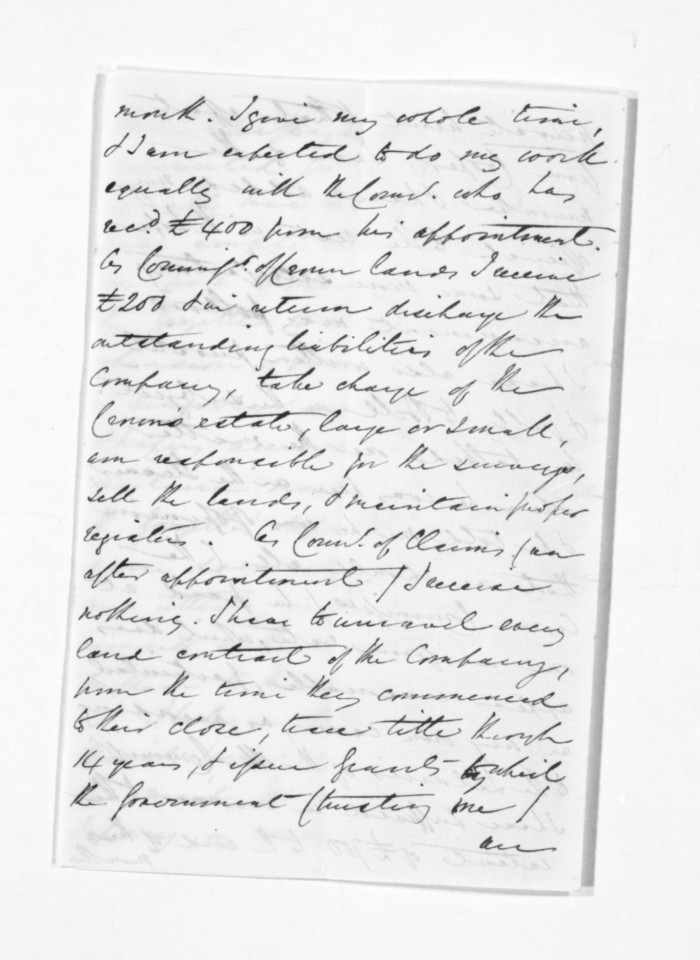 month. I give my whole time,
& I am expected to do my work
equally with the Comr. who has
recd. £400 from his appointment.
As Commiss. of Crown lands I receive
£200 & in return discharge the
outstanding liabilities of the
Company, take charge of the
Crown's estate, large or small,
am responsible for the surveys,
sell the lands, & maintain proper
registers. As Comr. of Claims (an
after appointment) I receive
nothing. I have to unravel every
land contract of the Company,
from the time they commenced
to their close, trace title through
14 years, & issue Grants by which
the Government (trusting me)
are